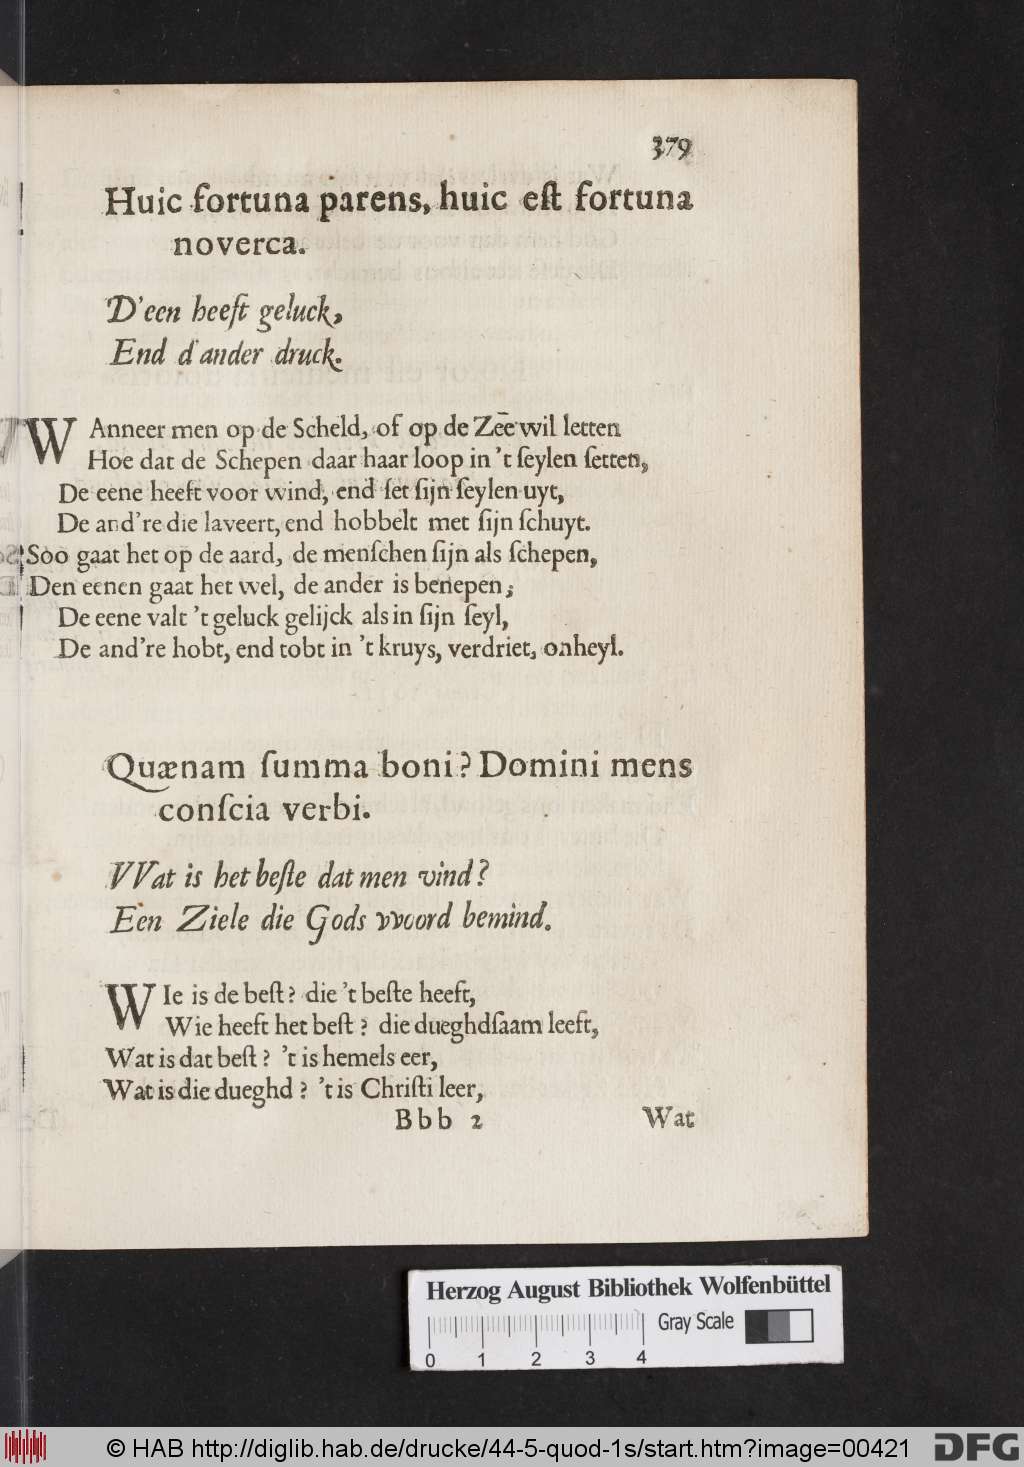 379
Huic fortuna parens, huic eſt fortuna
noverca.
D'een heeft geluck,
End d'ander druck.
WAnneer men op de Scheld, of op de Zēe wil letten
Hoe dat de Schepen daar haar loop in 't ſeylen ſetten,
De eene heeft voor wind, end ſet ſijn ſeylen uyt,
De and're die laveert, end hobbelt met ſijn ſchuyt.
Soo gaat het op de aard, de menſchen ſijn als ſchepen,
Den eenen gaat het wel, de ander is benepen;
De eene valt 't geluck gelijck als in ſijn ſeyl,
De and're hobt, end tobt in 't kruys, verdriet, onheyl.
Quænam ſumma boni? Domini mens
conſcia verbi.
VVat is het beſte dat men vind?
Een Ziele die Gods vvoord bemind.
WIe is de beſt? die 't beſte heeft,
Wie heeft het beſt? die dueghdſaam leeft,
Wat is dat beſt? 't is hemels eer,
Wat is die dueghd? 't is Chriſti leer,
Bbb 2 Wat
Herzog August Bibliothek Wolfenbüttel
Gray Scale
0 1 2 3 4
© HAB http://diglib.hab.de/drucke/44-5-quod-1s/start.htm?image=00421
DFG